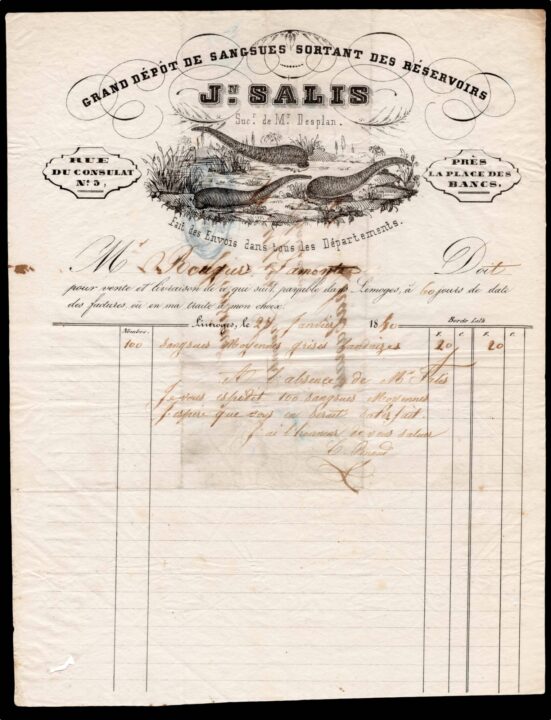 GRAND DÉPOT DE SANGSUES SORTANT DES RÉSERVOIRS
JN. SALIS
Sucr. de Mr. Desplan.
RUE
DU CONSULAT
No. 9,
PRÈS
LA PLACE DES
BANCS,
Fait des Envois dans tous les Départements.
Mr Doit
pour vente et livraison de ce que suit, payable dans Limoges, à 60 jours de date
des factures, où en ma traite à mon choix.
Limoges, le Janvier 18
Nombre. F. C. F. C.
100 Sangsues Moyennes grises 20 20
A l'absence de Mr Salis
Je vous expedit 100 sangsues Moyennes
J'espere que vous en serait satisfait.
J'ai l'honneur de vous saluer